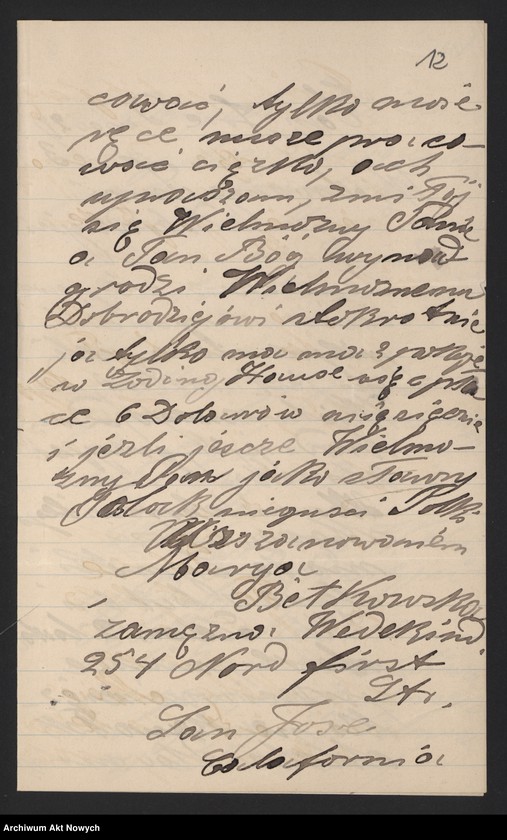 12
cować, tylko moje
ręce musze praco-
wać ciężko, och
upraszam, zmiłuj
się Wielmożny Panie
a Pan Bóg wynad
grodzi Wielmożnemu
Dobrodziejowi stokrotnie
ja tylko mam
w Loding House się
ce 6 Dolarów miesięcznie
i jeżli jescze Wielmo-
żny Pan jako sławny
Polack nieopusci Polki
Z uszanowaniem
Marya
Bętkowska
zamężna Wedekind
254 Nord first
Str.
San Jose
California
Archiwum Akt Nowych